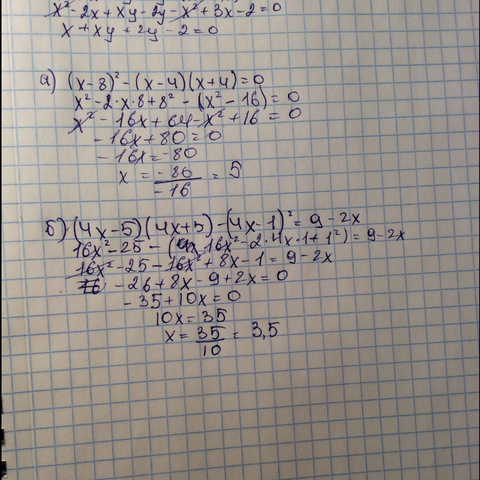 x² - 2x + xy - 2y - x² + 3x - 2 = 0
x + xy + 2y - 2 = 0
а) (x-8)² - (x-4)(x+4) = 0
x² - 2·x·8 + 8² - (x² - 16) = 0
x² - 16x + 64 - x² + 16 = 0
- 16x + 80 = 0
- 16x = -80
x = -80/-16 = 5
б) (4x-5)(4x+5) - (4x-1)² = 9 - 2x
16x² - 25 - (16x² - 2·4x·1 + 1²) = 9 - 2x
16x² - 25 - 16x² + 8x - 1 = 9 - 2x
- 26 + 8x - 9 + 2x = 0
- 35 + 10x = 0
10x = 35
x = 35/10 = 3,5